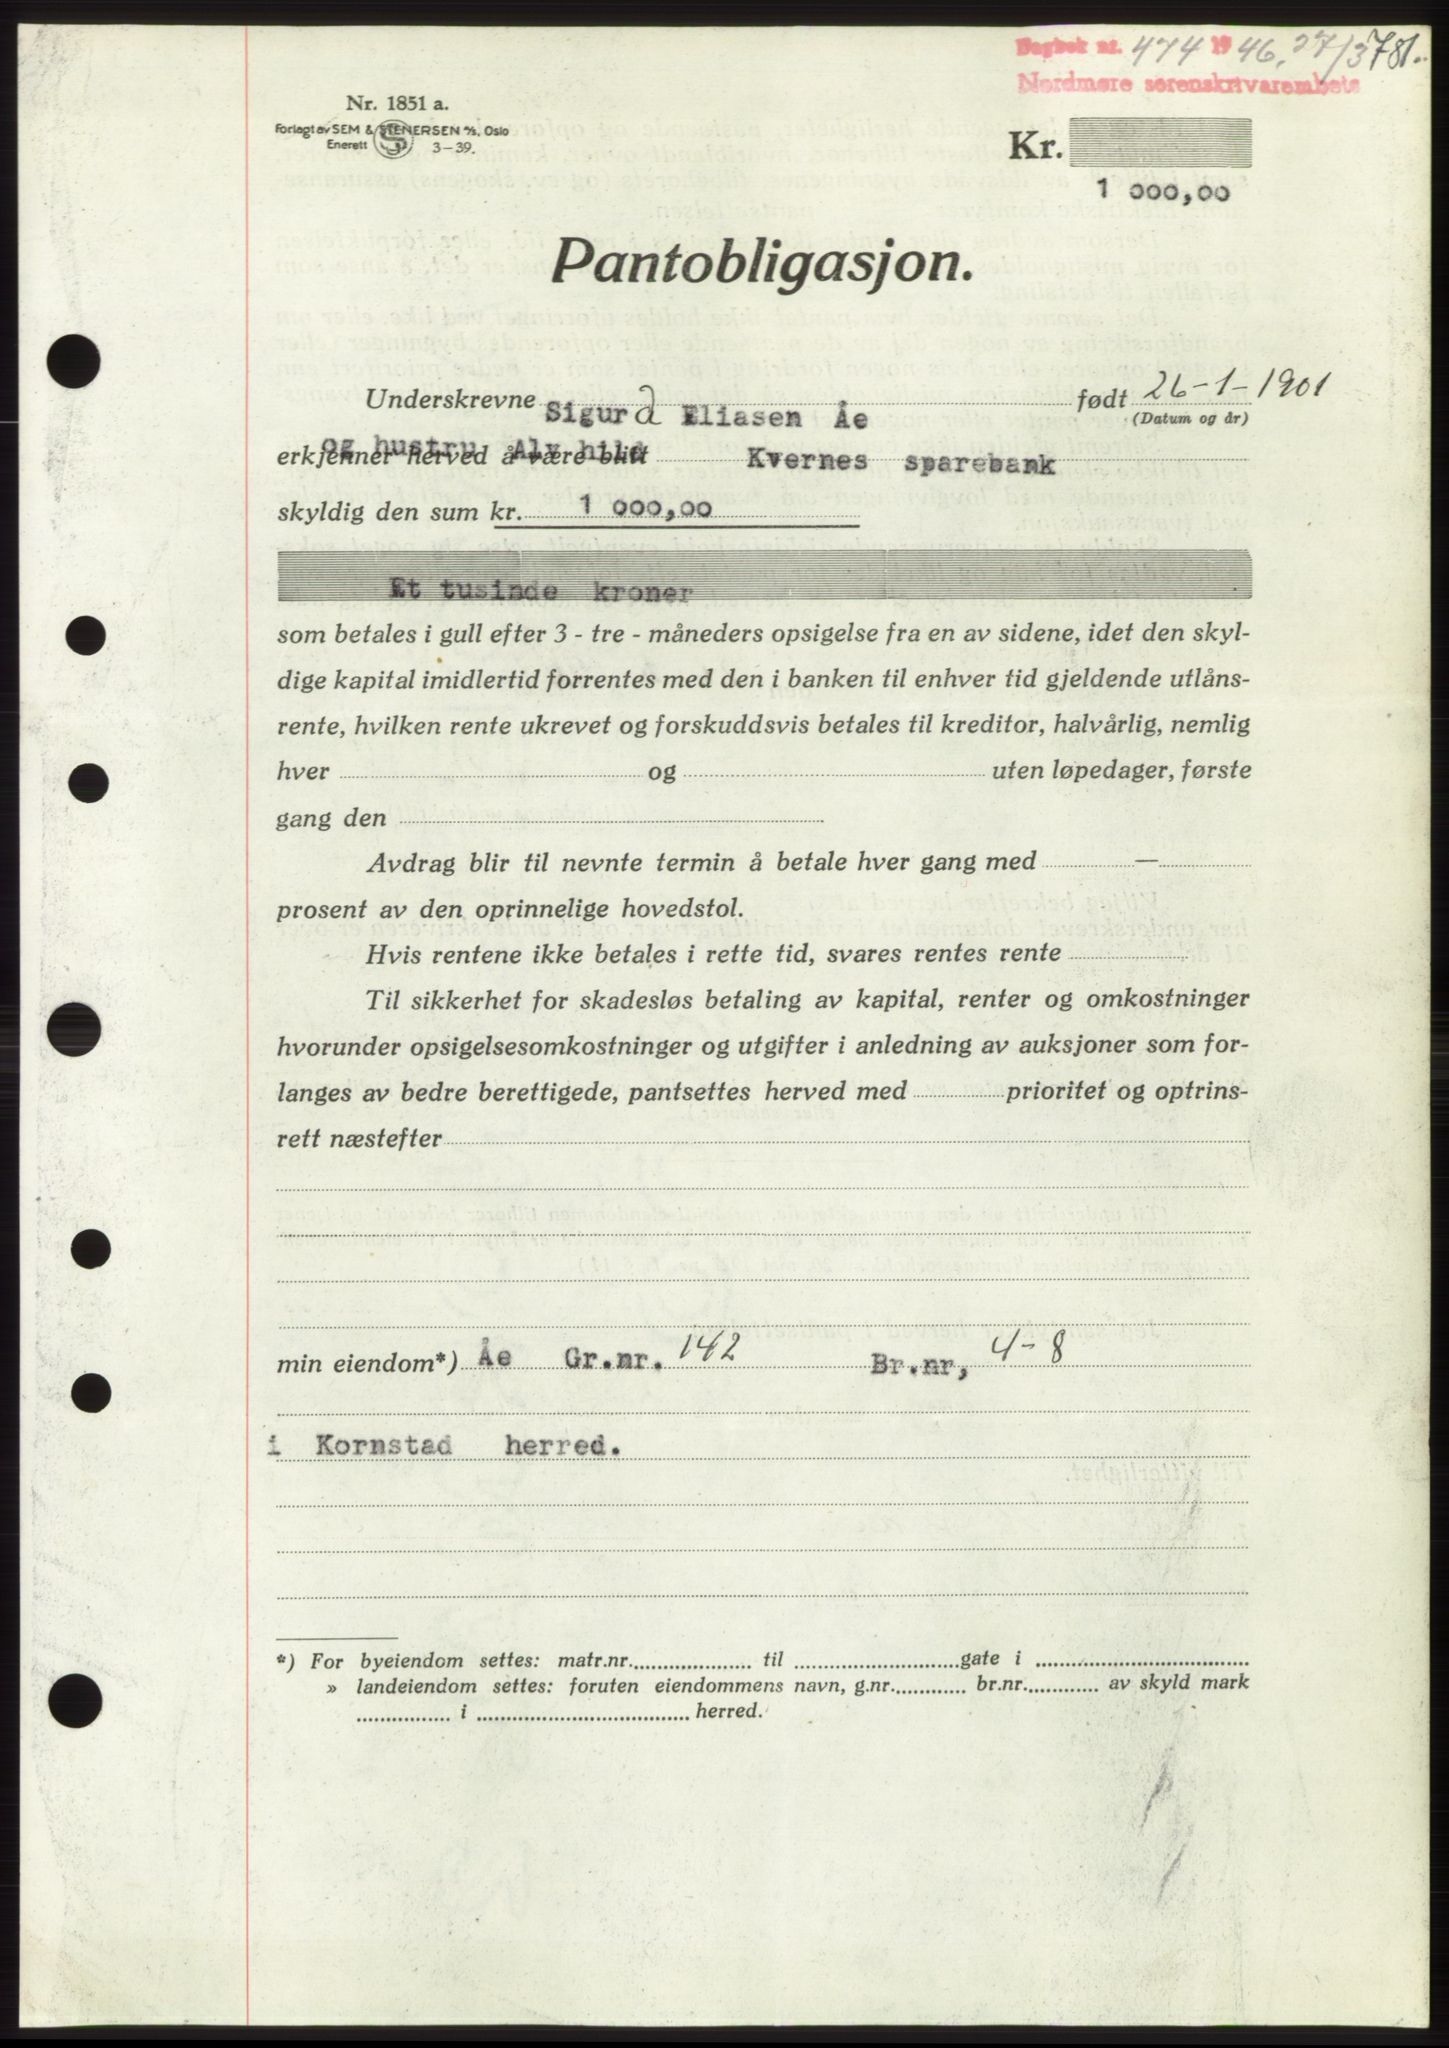 Dagbok nr. 474 1946, 27/3 781.
Nordmøre sorenskrivarembete
Nr. 1851 a.
Forlagt av SEM & STENERSEN A/S, Oslo
Enerett 3-39.
Kr.
1 000,00
Pantobligasjon.
Underskrevne Sigurd Eliasen Åe født 26-1-1901
(Datum og år)
og hustru Alvhild
erkjenner herved å være blitt Kvernes sparebank
skyldig den sum kr. 1 000,00
Et tusinde kroner
som betales i gull efter 3 - tre - måneders opsigelse fra en av sidene, idet den skyl-
dige kapital imidlertid forrentes med den i banken til enhver tid gjeldende utlåns-
rente, hvilken rente ukrevet og forskuddsvis betales til kreditor, halvårlig, nemlig
hver og uten løpedager, første
gang den
Avdrag blir til nevnte termin å betale hver gang med —
prosent av den oprinnelige hovedstol.
Hvis rentene ikke betales i rette tid, svares rentes rente
Til sikkerhet for skadesløs betaling av kapital, renter og omkostninger
hvorunder opsigelsesomkostninger og utgifter i anledning av auksjoner som for-
langes av bedre berettigede, pantsettes herved med prioritet og optrins-
rett næstefter
min eiendom*) Åe Gr.nr. 142 Br.nr, 4-8
i Kornstad herred.
*) For byeiendom settes: matr.nr. til gate i
» landeiendom settes: foruten eiendommens navn, g.nr. br.nr. av skyld mark
i herred.